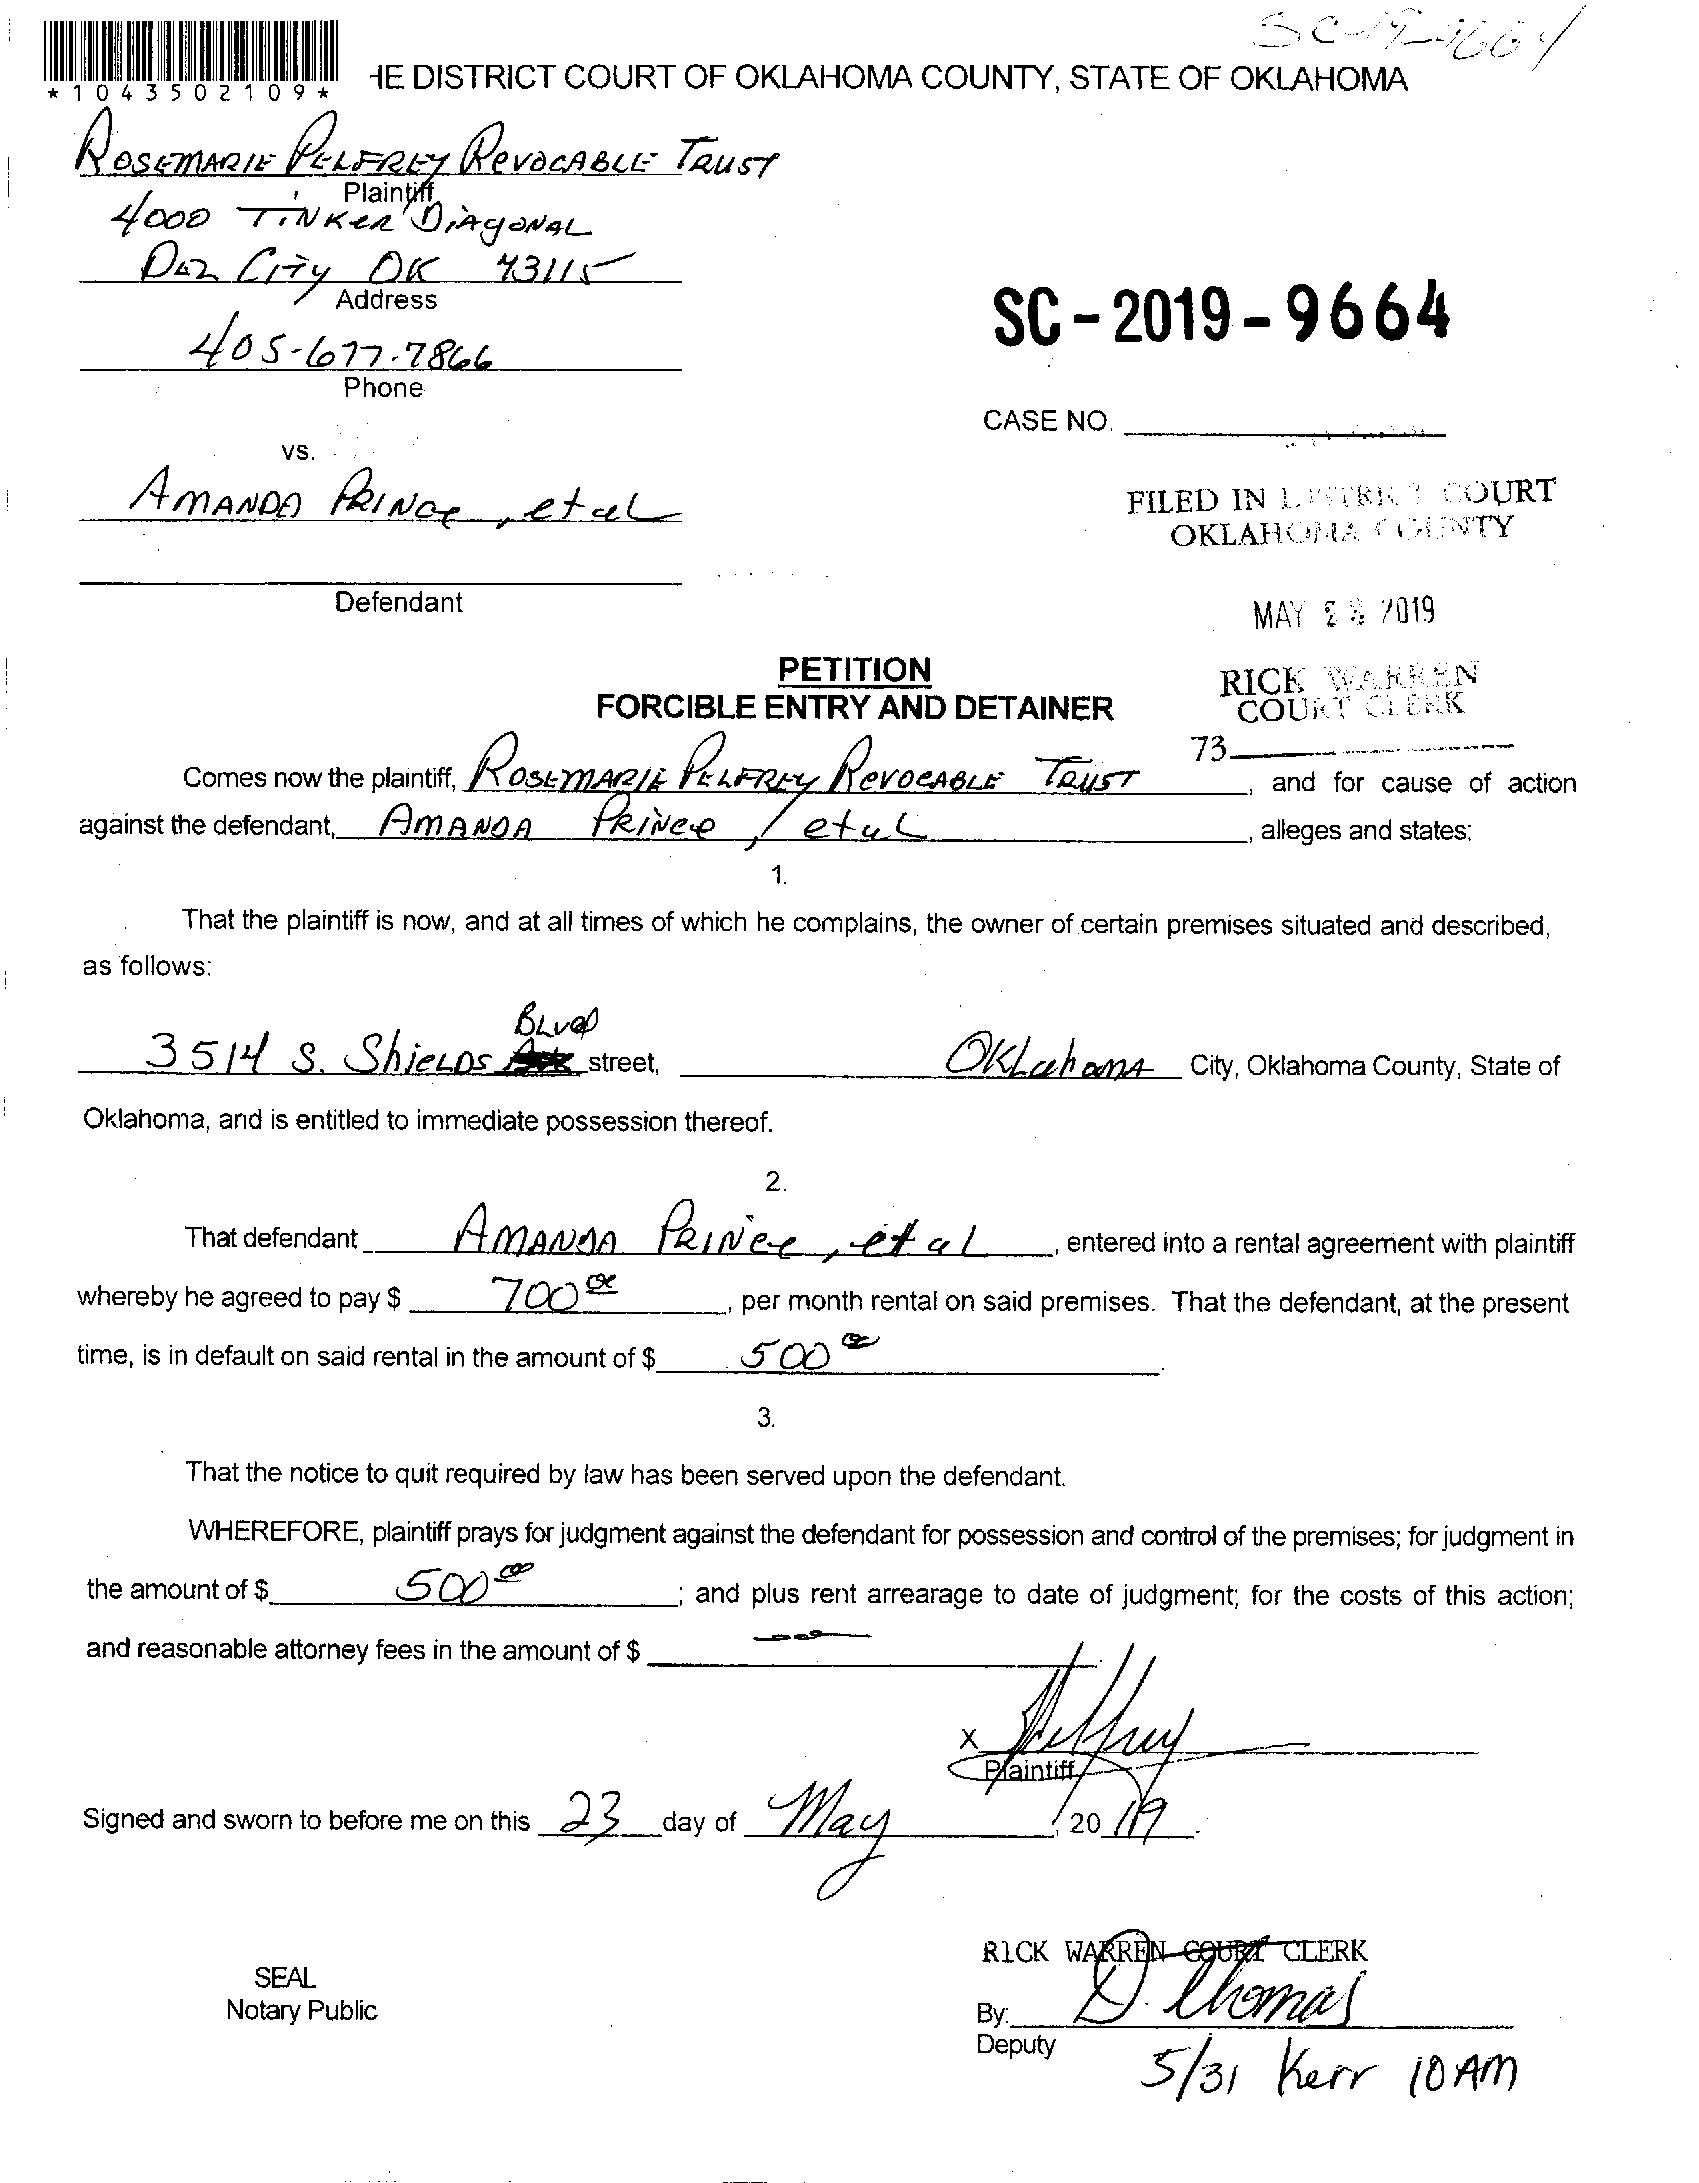 SC-19-9664
*1043502109*
HE DISTRICT COURT OF OKLAHOMA COUNTY, STATE OF OKLAHOMA
ROSEMARIE PELFREY REVOCABLE TRUST
Plaintiff
4000 TINKER DIAGONAL
DEL CITY OK 73115
Address
405-677-7866
Phone
SC-2019-9664
CASE NO.
vs.
AMANDA PRINCE, et al
Defendant
FILED IN DISTRICT COURT
OKLAHOMA COUNTY
MAY 2 2019
RICK WARREN
COURT CLERK
73
PETITION
FORCIBLE ENTRY AND DETAINER
Comes now the plaintiff, ROSEMARIE PELFREY REVOCABLE TRUST, and for cause of action
against the defendant, AMANDA PRINCE, et al, alleges and states:
1.
That the plaintiff is now, and at all times of which he complains, the owner of certain premises situated and described,
as follows:
3514 S. Shields BLVD street, Oklahoma City, Oklahoma County, State of
Oklahoma, and is entitled to immediate possession thereof.
2.
That defendant AMANDA PRINCE, et al, entered into a rental agreement with plaintiff
whereby he agreed to pay $ 700 00, per month rental on said premises. That the defendant, at the present
time, is in default on said rental in the amount of $ 500 00.
3.
That the notice to quit required by law has been served upon the defendant.
WHEREFORE, plaintiff prays for judgment against the defendant for possession and control of the premises; for judgment in
the amount of $ 500 00; and plus rent arrearage to date of judgment; for the costs of this action;
and reasonable attorney fees in the amount of $
X Pelfrey
Plaintiff
Signed and sworn to before me on this 23 day of May, 2019.
RICK WARREN COURT CLERK
SEAL
Notary Public
By: D. Thomas
Deputy
5/31 Kerr 10 AM